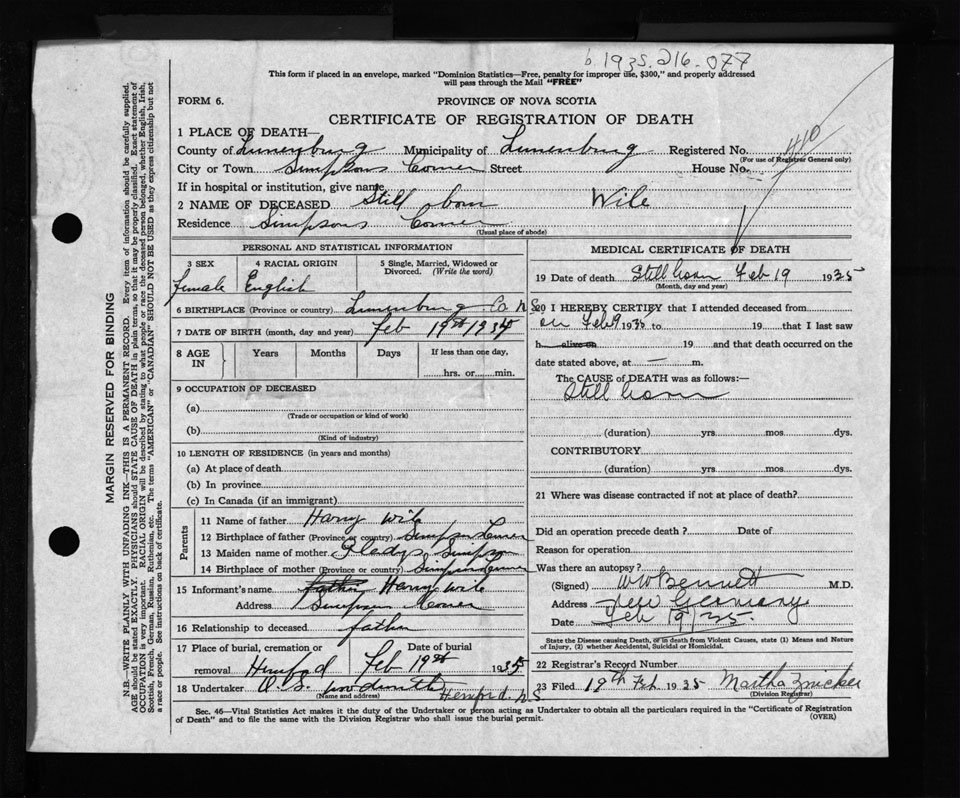 b.1935.216.077
This form if placed in an envelope, marked "Dominion Statistics—Free, penalty for improper use, $300," and properly addressed
will pass through the Mail "FREE"
FORM 6.
PROVINCE OF NOVA SCOTIA
CERTIFICATE OF REGISTRATION OF DEATH
1 PLACE OF DEATH—
County of Lunenburg Municipality of Lunenburg Registered No.
(For use of Registrar General only)
City or Town Simpsons Corner Street House No.
If in hospital or institution, give name
2 NAME OF DECEASED Still born Wile
Residence Simpsons Corner
(Usual place of abode)
PERSONAL AND STATISTICAL INFORMATION
3 SEX 4 RACIAL ORIGIN 5 Single, Married, Widowed or
Divorced. (Write the word)
female English
6 BIRTHPLACE (Province or country) Lunenburg Co N.S.
7 DATE OF BIRTH (month, day and year) Feb 19st 1935
8 AGE IN Years Months Days If less than one day,
hrs. or min.
9 OCCUPATION OF DECEASED
(a)
(Trade or occupation or kind of work)
(b)
(Kind of industry)
10 LENGTH OF RESIDENCE (in years and months)
(a) At place of death
(b) In province
(c) In Canada (if an immigrant)
Parents
11 Name of father Harry Wile
12 Birthplace of father (Province or country) Simpson Corner
13 Maiden name of mother Gladys Simpson
14 Birthplace of mother (Province or country) Simpson Corner
15 Informant's name father Harry Wile
Address Simpson Corner
16 Relationship to deceased father
17 Place of burial, cremation or Date of burial
removal Hemford Feb 19st 1935
18 Undertaker
(Name and address) Hemford. N.S
MEDICAL CERTIFICATE OF DEATH
19 Date of death Still born Feb 19 1935
(Month, day and year)
20 I HEREBY CERTIFY that I attended deceased from
on Feb 9 1935 to 19 that I last saw
h alive on 19 and that death occurred on the
date stated above, at — m.
The CAUSE of DEATH was as follows:—
Still born
(duration) yrs. mos. dys.
CONTRIBUTORY
(duration) yrs. mos. dys.
21 Where was disease contracted if not at place of death?
Did an operation precede death? Date of
Reason for operation
Was there an autopsy?
(Signed) W W Bennett M.D.
Address New Germany
Date Feb 19/35.
State the Disease causing Death, or in death from Violent Causes, state (1) Means and Nature
of Injury, (2) whether Accidental, Suicidal or Homicidal.
22 Registrar's Record Number
23 Filed 19th Feb 1935 Martha Zwicker
(Division Registrar)
Sec. 46—Vital Statistics Act makes it the duty of the Undertaker or person acting as Undertaker to obtain all the particulars required in the "Certificate of Registration
of Death" and to file the same with the Division Registrar who shall issue the burial permit.
(OVER)
MARGIN RESERVED FOR BINDING
N.B.—WRITE PLAINLY WITH UNFADING INK—THIS IS A PERMANENT RECORD. Every item of information should be carefully supplied.
AGE should be stated EXACTLY. PHYSICIANS should STATE CAUSE OF DEATH in plain terms, so that it may be properly classified. Exact statement of
OCCUPATION is very important. RACIAL ORIGIN will be described by stating to what people or race the deceased person belonged, whether English, Irish,
Scottish, French, German, Russian, Ruthenian, etc. The terms "AMERICAN" or "CANADIAN" SHOULD NOT BE USED as they express citizenship but not
a race or people. See instructions on back of certificate.